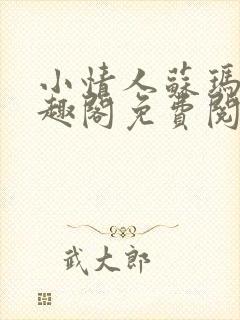 小情人蘇瑪
趣閣免費閱
武大郎